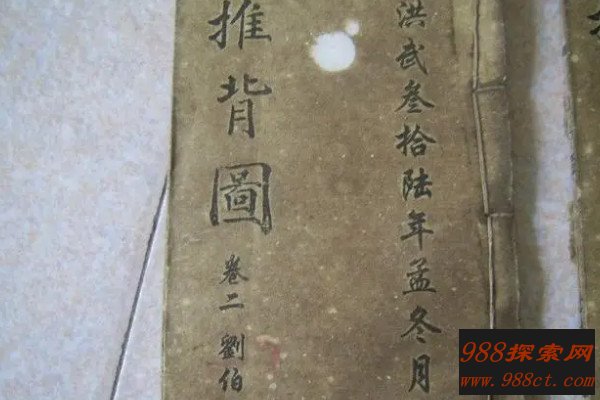 洪武叁拾陆年孟冬月
推背圖
卷二 劉伯
988探索网
www.988ct.com